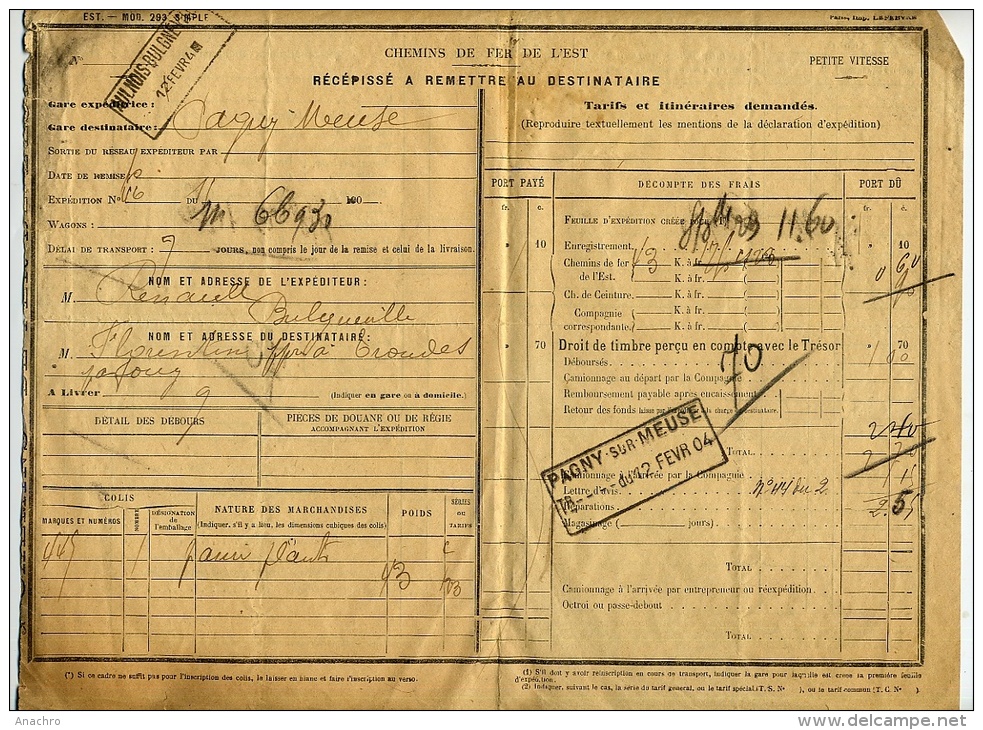 EST. — MOD. 293 SIMPLE
Paris, Imp. LEFEBVRE
N°
CHEMINS DE FER DE L'EST
PETITE VITESSE
RÉCÉPISSÉ A REMETTRE AU DESTINATAIRE
12 FEVR 4
Gare expéditrice :
Gare destinataire : Pagny Meuse
SORTIE DU RÉSEAU EXPÉDITEUR PAR
DATE DE REMISE
EXPÉDITION N° 16 DU 190
WAGONS : 66930
DÉLAI DE TRANSPORT : 7 JOURS, non compris le jour de la remise et celui de la livraison.
NOM ET ADRESSE DE L'EXPÉDITEUR :
M. Renault
Bulgnéville
NOM ET ADRESSE DU DESTINATAIRE :
M. Florentin à Trondes
A LIVRER (Indiquer en gare ou à domicile.)
DÉTAIL DES DÉBOURS
PIÈCES DE DOUANE OU DE RÉGIE
ACCOMPAGNANT L'EXPÉDITION
COLIS
MARQUES ET NUMÉROS
NOMBRE
DÉSIGNATION de l'emballage
NATURE DES MARCHANDISES
(Indiquer, s'il y a lieu, les dimensions cubiques des colis)
POIDS
SÉRIES OU TARIFS
449 1 43
Tarifs et itinéraires demandés.
(Reproduire textuellement les mentions de la déclaration d'expédition)
PORT PAYÉ
DÉCOMPTE DES FRAIS
PORT DÛ
fr. c.
fr. c.
FEUILLE D'EXPÉDITION CRÉÉE POUR 11.60
" 10 Enregistrement " 10
Chemins de fer 43 K. à fr.
de l'Est. K. à fr.
Ch. de Ceinture. K. à fr.
Compagnie K. à fr.
correspondante. K. à fr.
" 70 Droit de timbre perçu en compte avec le Trésor " 70
Déboursés
Camionnage au départ par la Compagnie
Remboursement payable après encaissement
Retour des fonds
70
TOTAL
Camionnage à l'arrivée par la Compagnie
Lettre d'avis
Réparations
Magasinage ( jours)
PAGNY-SUR-MEUSE
du 12 FEVR 04
TOTAL
Camionnage à l'arrivée par entrepreneur ou réexpédition
Octroi ou passe-debout
TOTAL
(*) Si ce cadre ne suffit pas pour l'inscription des colis, le laisser en blanc et faire l'inscription au verso.
(1) S'il doit y avoir réinscription en cours de transport, indiquer la gare pour laquelle est créée sa première feuille d'expédition.
(2) Indiquer, suivant le cas, la série du tarif général, ou le tarif spécial (T. S. N° ), ou le tarif commun (T. C. N° ).
Anachro
www.delcampe.net